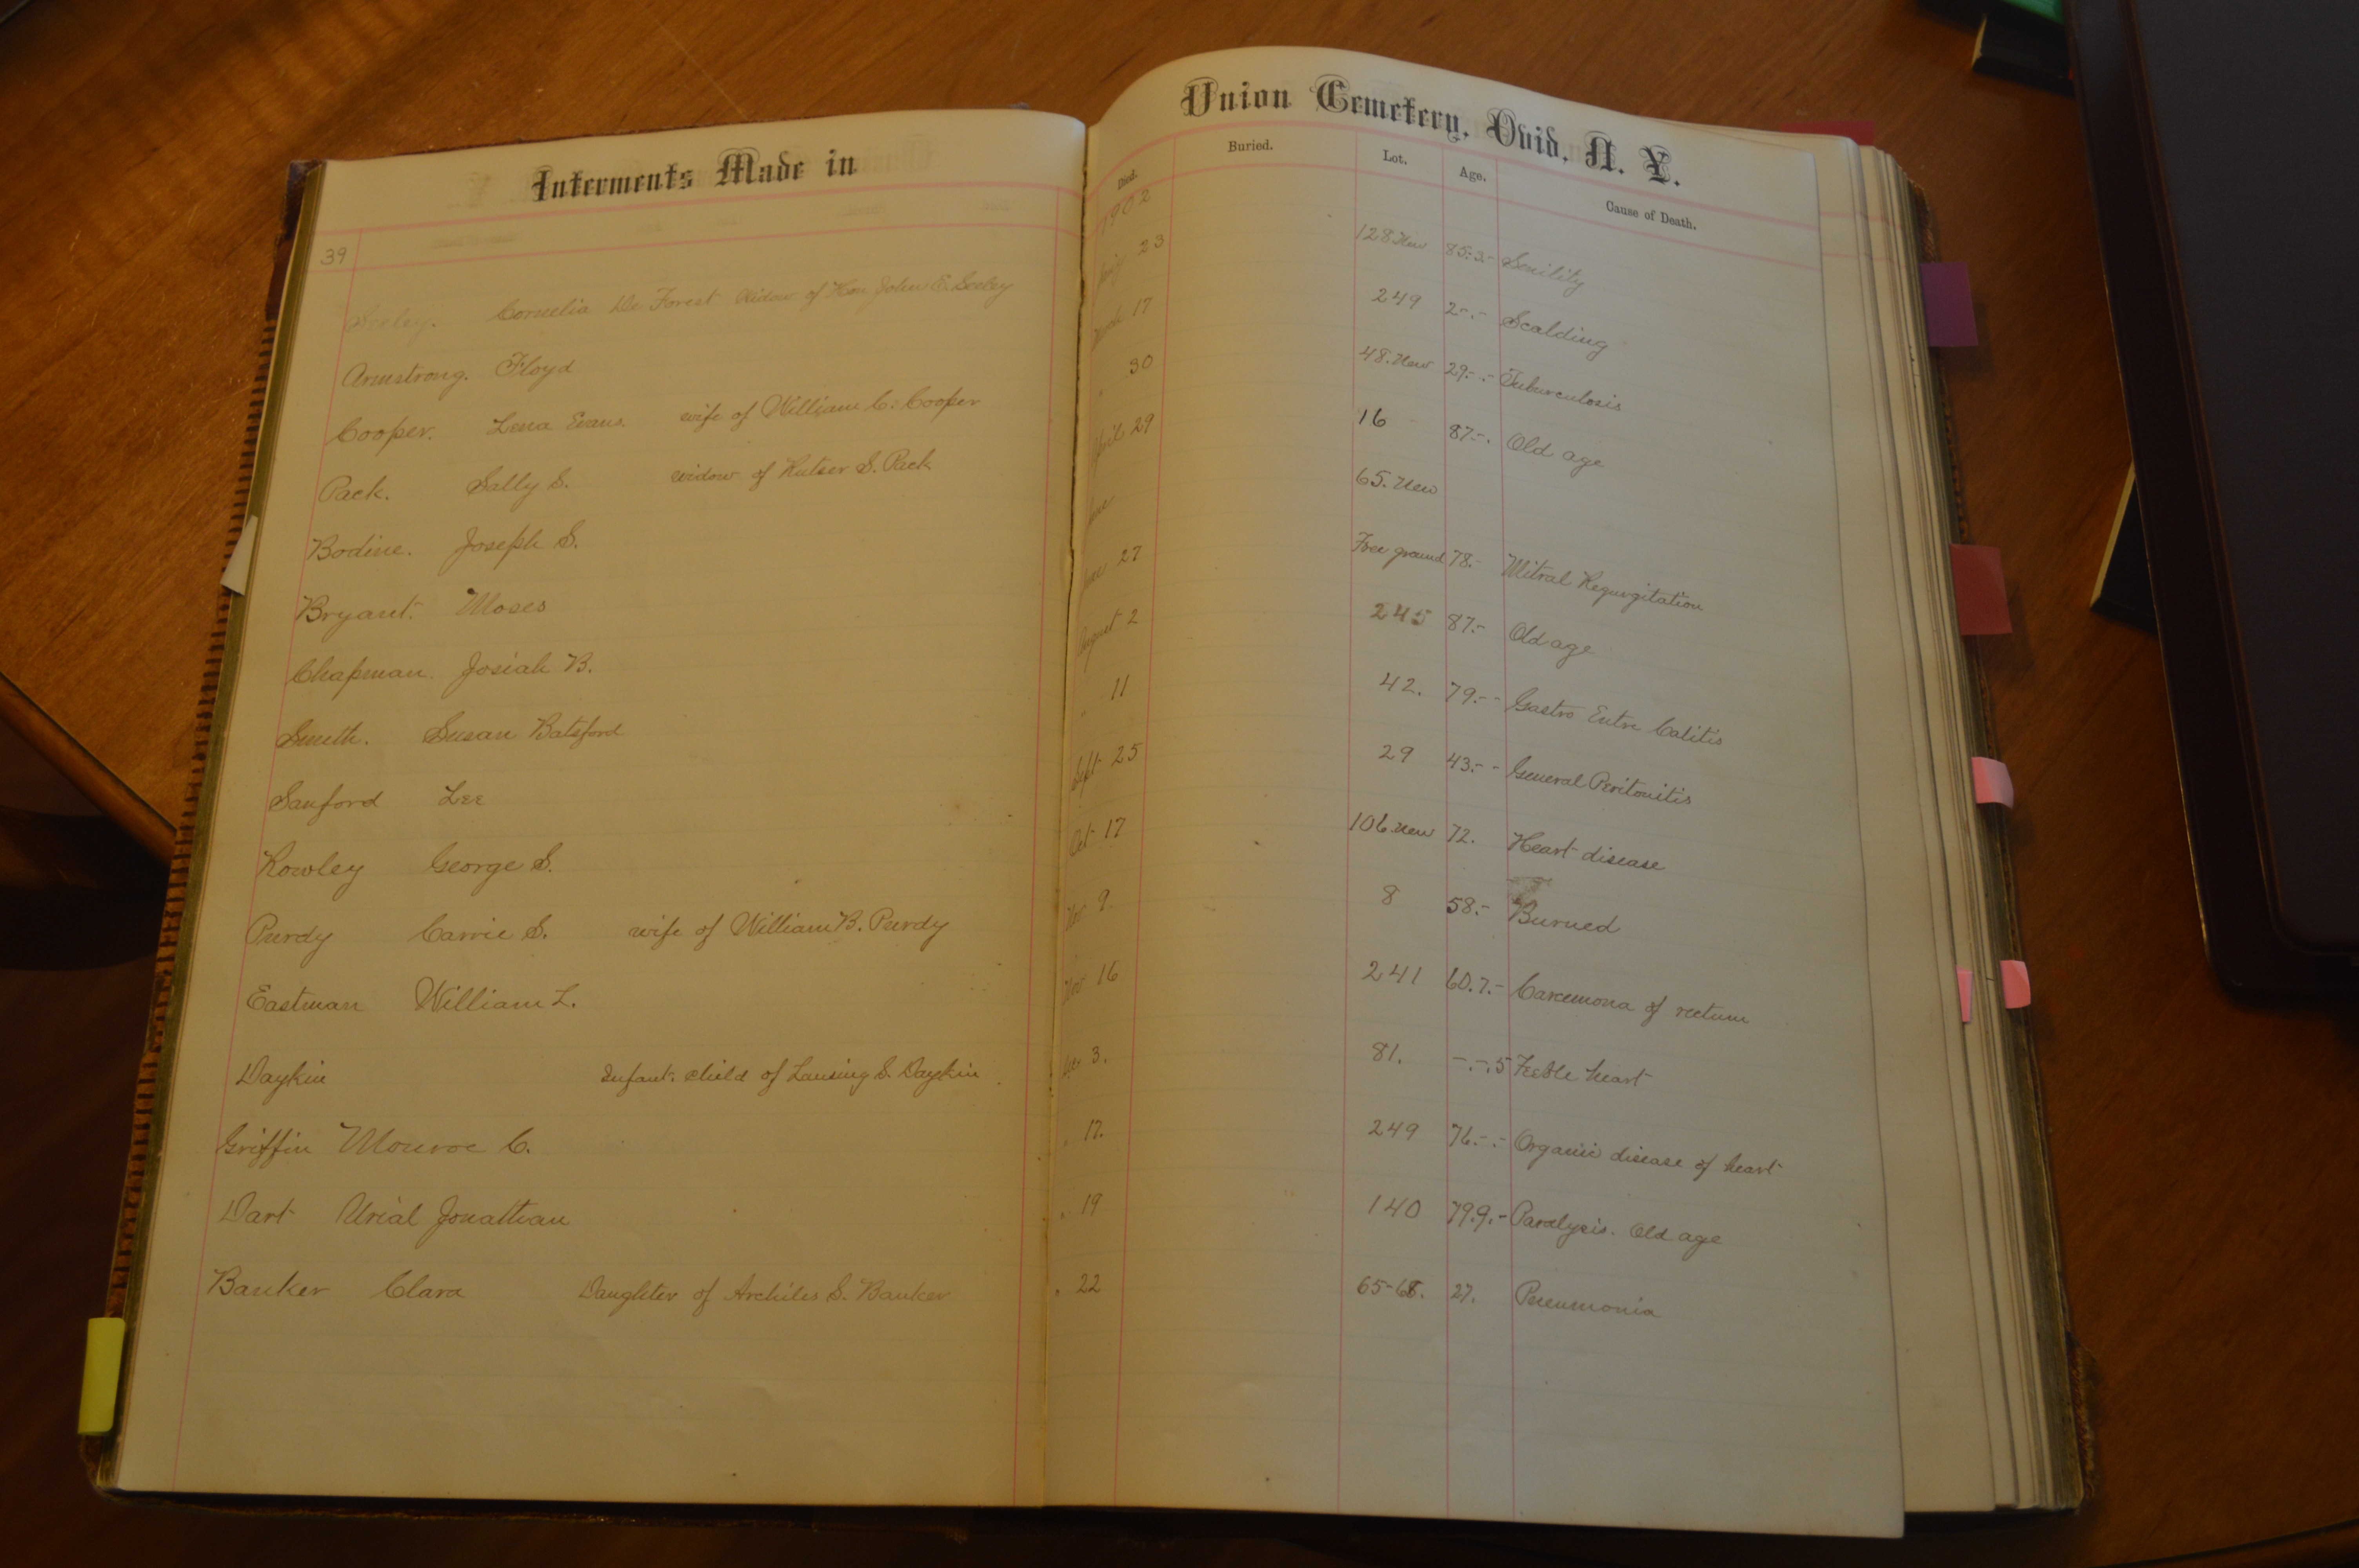 Interments Made in Union Cemetery, Ovid, N. Y.
Died. Buried. Lot. Age. Cause of Death.
39 1902
Seeley. Cornelia De Forest Widow of Hon John E. Seeley 23 128 New 85.3.- Senility
Armstrong. Floyd March 17 249 2-.- Scalding
Cooper. Lena Evans. wife of William C. Cooper " 30 48. New 29.-.- Tuberculosis
Pack. Sally S. widow of Rutser S. Pack April 29 16 87.-. Old age
Bodine. Joseph S. June 65. New
Bryant. Moses June 27 Free ground 78.- Mitral Regurgitation
Chapman. Josiah B. August 2 245 87.- Old age
Smith. Susan Batsford " 11 42. 79.-- Gastro Entre Calitis
Sanford Lee Sept 25 29 43.-- General Peritonitis
Rowley George S. Oct 17 106 New 72. Heart disease
Purdy Carrie S. wife of William B. Purdy Nov 9 8 58.- Burned
Eastman William L. Nov 16 241 60.7.- Carcemona of rectum
Daykin Infant. child of Lansing S. Daykin Dec 3. 81. -.-.5 Feeble heart
Griffin Monroe C. " 17. 249 76.-.- Organic disease of heart
Dart Urial Jonathan " 19 140 79.9.- Paralysis. Old age
Banker Clara Daughter of Archiles S. Banker " 22 65-68. 27. Pneumonia